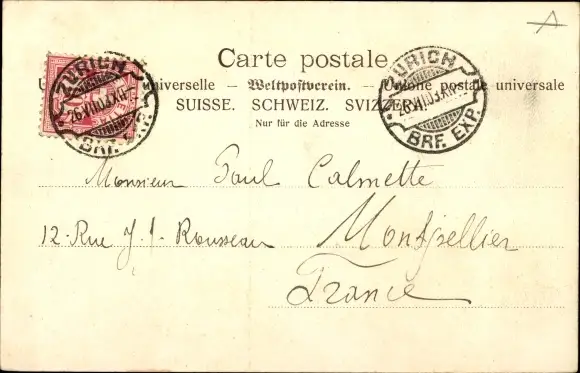 Carte postale
universelle — Weltpostverein. — Unione postale universale
SUISSE. SCHWEIZ. SVIZZERA
Nur für die Adresse
ZÜRICH
26.VI.03.XII
BRF. EXP.
ZÜRICH
26.VI.03.XII
BRF. EXP.
Monsieur Paul Calmette
12 - Rue J. J. Rousseau Montpellier
France